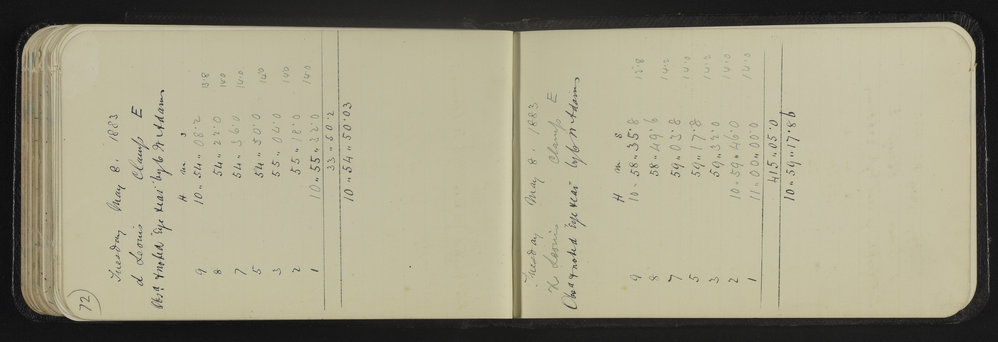 72
Tuesday May 8. 1883
d Leonis Clamp E
Obsd & noted "Eye & ear" by C W Adams
H m s
9 10 " 54 " 08.2 13.8
8 54 " 22.0 14.0
7 54 " 36.0 14.0
5 54 " 50.0 14.0
3 55 " 04.0 14.0
2 55 " 18.0 14.0
1 10 " 55 " 32.0
33 " 50.2
10 " 54 " 50.03
Tuesday May 8. 1883
Leonis Clamp E
Obsd & noted "Eye & ear" by C W Adams
H m s
9 10 " 58 " 35.8 13.8
8 58 " 49.6 14.2
7 59 " 03.8 14.0
5 59 " 17.8 14.2
3 59 " 32.0 14.0
2 10 " 59 " 46.0 14.0
1 11 " 00 " 00.0
415 " 05.0
10 " 59 " 17.86